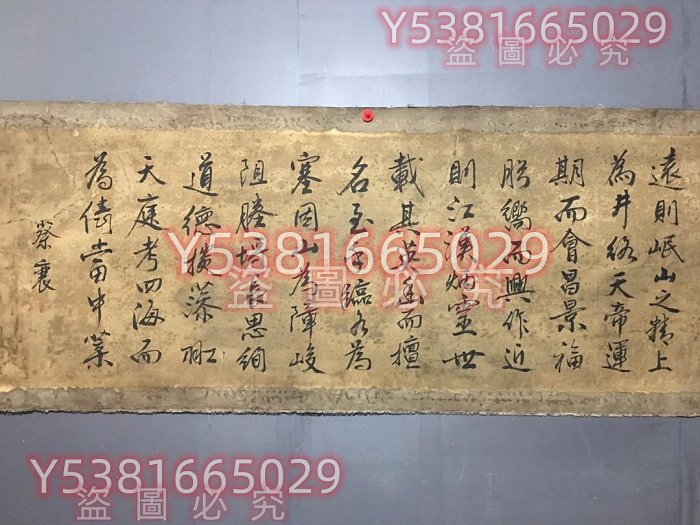 Y5381665029
盜圖必究
遠則岷山之精上
為井絡天帝運
期而會昌景福
肸嚮而興作近
則江漢炳靈世
載其英而擅
名至乎臨谷為
塞因山為障峻
阻塍埒長思絢
道德摛藻掞
天庭考四海而
為儁當中葉
蔡襄
Y5381665029
盜圖必究
Y5381665029
盜圖必究